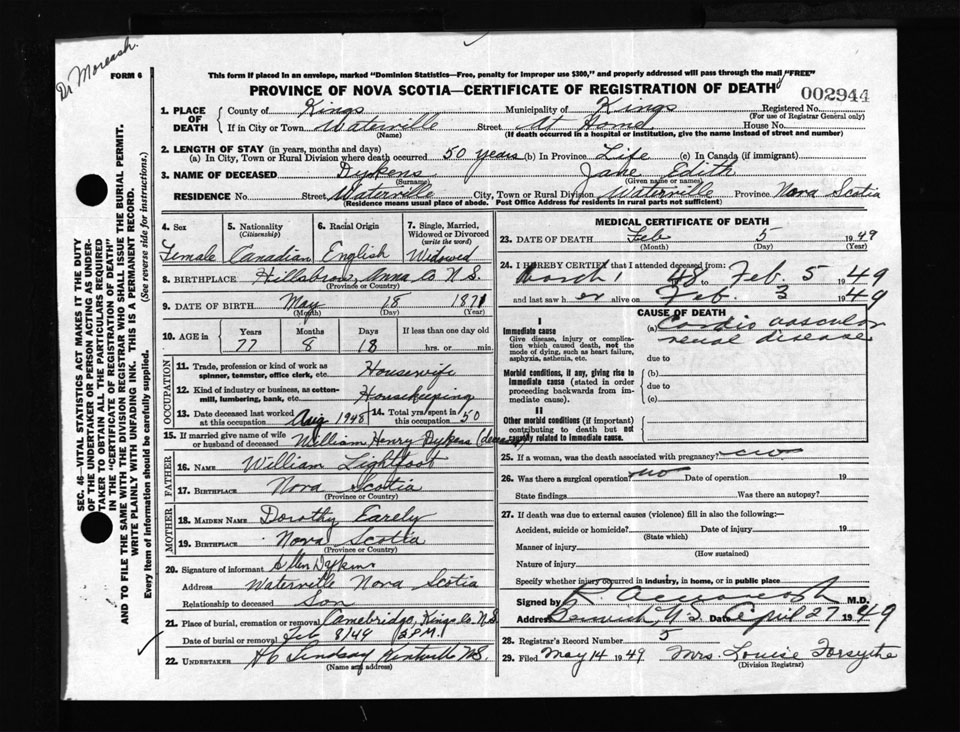 Dr Moreash.
FORM 6
This form if placed in an envelope, marked "Dominion Statistics—Free, penalty for improper use $300," and properly addressed will pass through the mail "FREE"
PROVINCE OF NOVA SCOTIA—CERTIFICATE OF REGISTRATION OF DEATH
002944
1. PLACE OF DEATH
County of Kings Municipality of Kings Registered No.
(For use of Registrar General only)
If in City or Town Waterville Street At Home House No.
(Name) (If death occurred in a hospital or institution, give the name instead of street and number)
2. LENGTH OF STAY (in years, months and days)
(a) In City, Town or Rural Division where death occurred 50 years (b) In Province Life (c) In Canada (if immigrant)
3. NAME OF DECEASED Dykens Jane Edith
(Surname) (Given name or names)
RESIDENCE No. Street Waterville City, Town or Rural Division Waterville Province Nova Scotia
(Residence means usual place of abode. Post Office Address for residents in rural parts not sufficient)
4. Sex 5. Nationality (Citizenship) 6. Racial Origin 7. Single, Married, Widowed or Divorced (write the word)
Female Canadian English Widowed
8. BIRTHPLACE Hillsbrow, Anna Co N.S.
(Province or Country)
9. DATE OF BIRTH May 18 1871
(Month) (Day) (Year)
10. AGE in Years Months Days If less than one day old
77 8 18 hrs. or min.
OCCUPATION
11. Trade, profession or kind of work as spinner, teamster, office clerk, etc. Housewife
12. Kind of industry or business, as cotton-mill, lumbering, bank, etc. Housekeeping
13. Date deceased last worked at this occupation Aug 1948 14. Total yrs. spent in 50
15. If married give name of wife or husband of deceased William Henry Dykens
FATHER
16. NAME William Lightfoot
17. BIRTHPLACE Nova Scotia
(Province or Country)
MOTHER
18. MAIDEN NAME Dorothy Earely
19. BIRTHPLACE Nova Scotia
(Province or Country)
20. Signature of informant Allen Dykens
Address Waterville Nova Scotia
Relationship to deceased Son
21. Place of burial, cremation or removal Cambridge, Kings Co. N.S.
Date of burial or removal Feb 8/49 2 P.M.
22. UNDERTAKER H C Lindsay Kentville N.S.
(Name and address)
MEDICAL CERTIFICATE OF DEATH
23. DATE OF DEATH Feb 5 1949
(Month) (Day) (Year)
24. I HEREBY CERTIFY that I attended deceased from:
March 1 48 to Feb. 5 1949
and last saw her alive on Feb. 3 1949
CAUSE OF DEATH
I
Immediate cause
Give disease, injury or complication which caused death, not the mode of dying, such as heart failure, asphyxia, asthenia, etc.
(a) Cardio vascular
renal disease
due to
Morbid conditions, if any, giving rise to immediate cause (stated in order proceeding backwards from immediate cause).
(b)
due to
(c)
II
Other morbid conditions (if important) contributing to death but not causally related to immediate cause.
25. If a woman, was the death associated with pregnancy? no
26. Was there a surgical operation? no Date of operation 19
State findings Was there an autopsy?
27. If death was due to external causes (violence) fill in also the following:—
Accident, suicide or homicide? Date of injury 19
(State which)
Manner of injury
(How sustained)
Nature of injury
Specify whether injury occurred in industry, in home, or in public place
Signed by M.D.
Address Berwick, N.S. Date April 27 1949
28. Registrar's Record Number 5
29. Filed May 14 1949 Mrs. Louise Forsythe
(Division Registrar)
SEC. 46—VITAL STATISTICS ACT MAKES IT THE DUTY
OF THE UNDERTAKER OR PERSON ACTING AS UNDER-
TAKER TO OBTAIN ALL THE PARTICULARS REQUIRED
IN THE "CERTIFICATE OF REGISTRATION OF DEATH"
AND TO FILE THE SAME WITH THE DIVISION REGISTRAR WHO SHALL ISSUE THE BURIAL PERMIT.
WRITE PLAINLY WITH UNFADING INK. THIS IS A PERMANENT RECORD.
Every item of information should be carefully supplied. (See reverse side for instructions.)